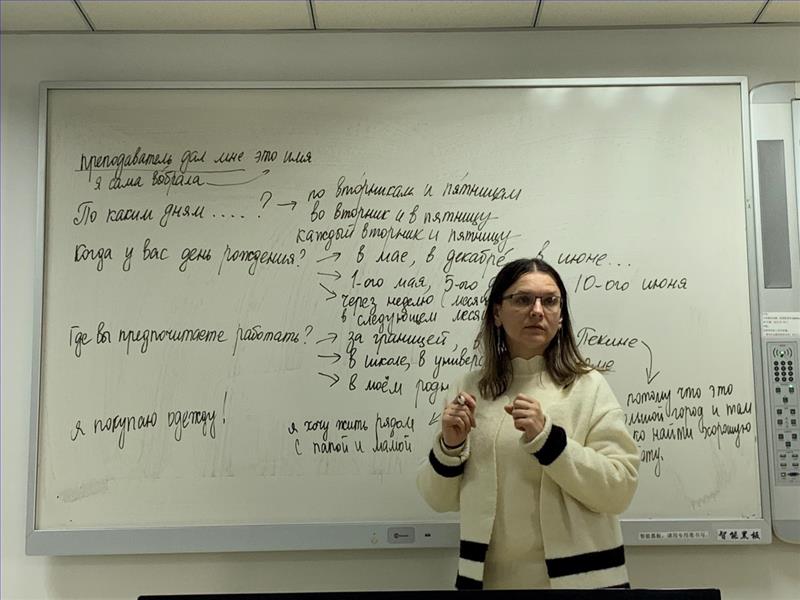 преподаватель дал мне это имя
я сама вобрала
По каким дням ..... ? → по вторникам и пятницам
во вторник и в пятницу
каждый вторник и пятницу
Когда у вас день рождения? → в мае, в декабре, в июне...
→ 1-ого мая, 5-ого 10-ого июня
через неделю
в следующем
Где вы предпочитаете работать? → за границей, в Пекине
→ в школе, в
→ в моём
потому что это
город и там
найти хорошую
я покупаю одежду!
я хочу жить рядом
с папой и мамой
智能黑板，请用专用教书写。
智能黑板